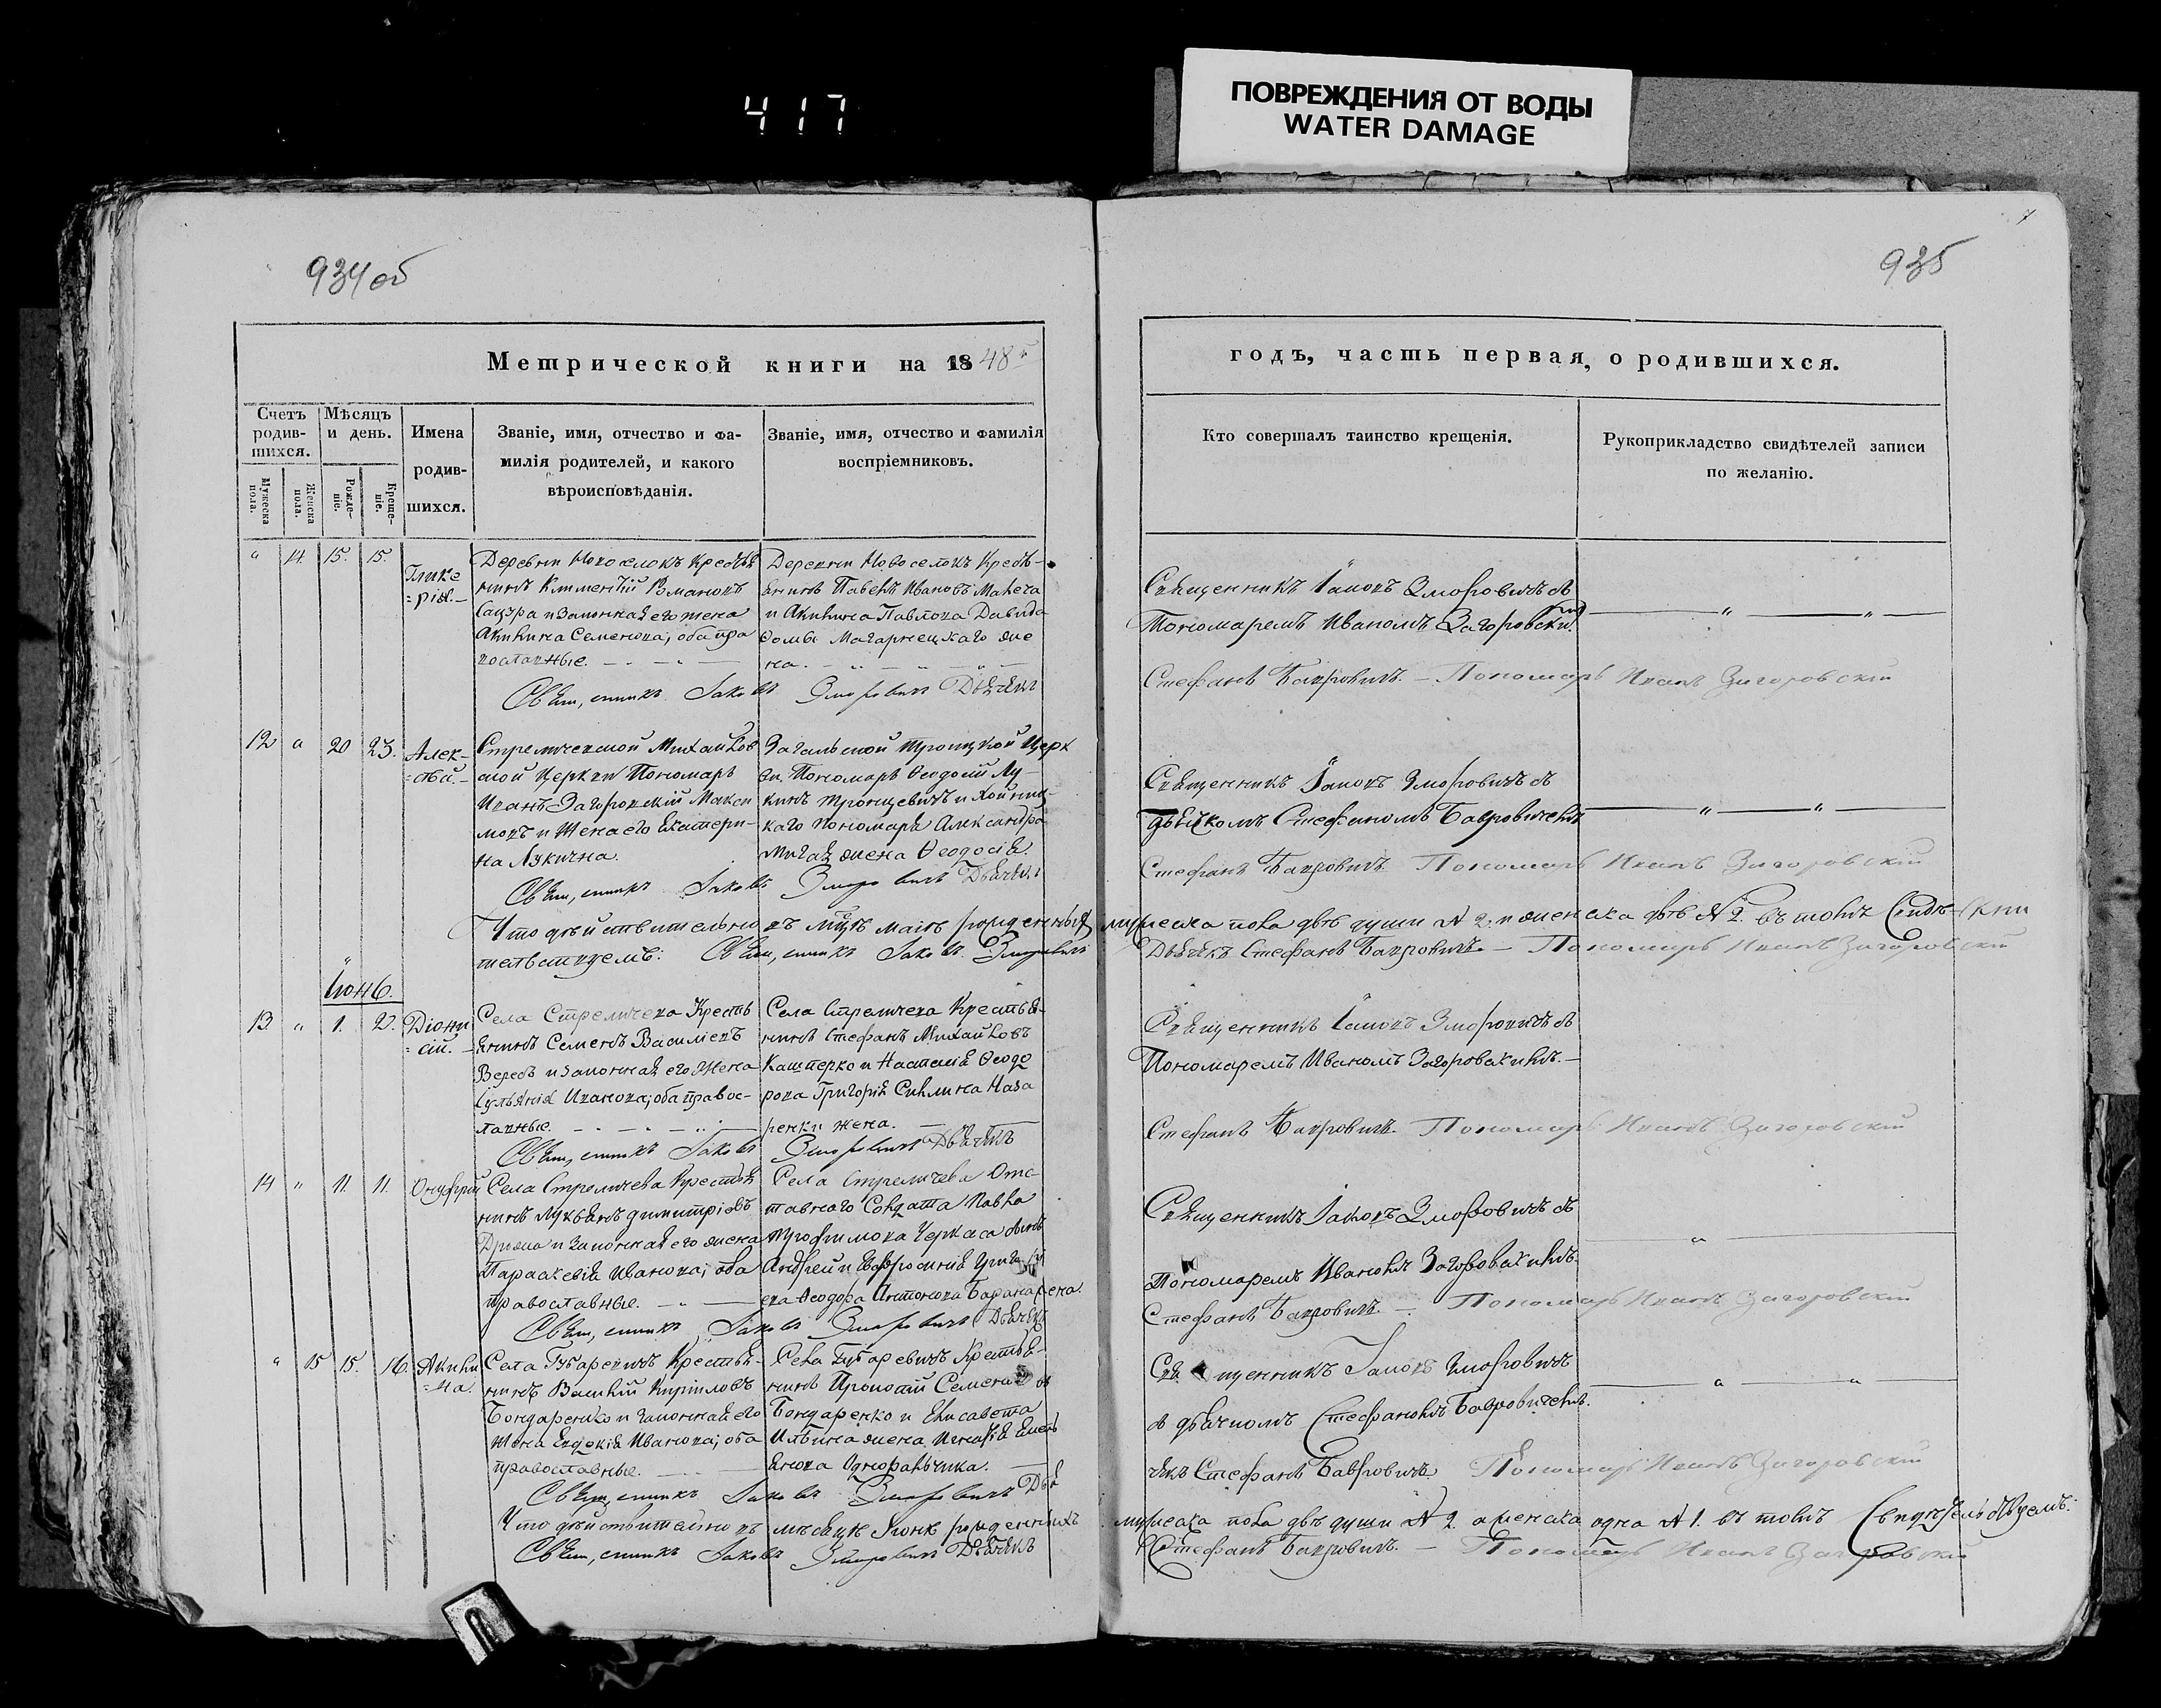 417
ПОВРЕЖДЕНИЯ ОТ ВОДЫ
WATER DAMAGE
934 об
935
Метрической книги на 1848й
годъ, часть первая, о родившихся.
Счетъ родившихся.
Мѣсяцъ и день.
Имена родившихся.
Званіе, имя, отчество и фамилія родителей, и какого вѣроисповѣданія.
Званіе, имя, отчество и фамилія воспріемниковъ.
Кто совершалъ таинство крещенія.
Рукоприкладство свидѣтелей записи по желанію.
Мужеска пола.
Женска пола.
Рожденіе.
Крещеніе.
" 14. 15. 15.
Глике=
=рія.
Деревни Новоселокъ Крестья
нинъ Климентій Романовъ
Сацура и законная его жена
Акилина Семенова; оба пра
вославные.
Деревни Новоселокъ Кресть-
янинъ Павелъ Ивановъ Малеча
и Акилина Павлова Давида
Жена.
Священникъ Іаковъ Эморовичъ съ
Пономаремъ Иваномъ Загоровским
Свящ,енникъ Іаковъ Эморовичъ Дьячекъ
Стефанъ Бавровичъ. — Пономарь Иванъ Загоровскій
12 " 20 23.
Алек-
=сѣй.
Стреличевской Михайлов
ской Церкви Пономарь
Иванъ Загоровскій Макси
мовъ и Жена его Екатери-
на Лукична.
Загальской Троицкой Церк
ви Пономарь Ѳеодосій Лу-
кинъ Тронцевичъ и Хойниц-
каго Пономаря Александра
жена Ѳеодосія.
Священникъ Іаковъ Эморовичъ съ
Дьячкомъ Стефаномъ Бавровичемъ
Свящ,енникъ Іаковъ Эморовичъ Дьячекъ
Стефанъ Бавровичъ. Пономарь Иванъ Загоровскій
Что дѣйствительно въ мцѣ маіѣ рожденныхъ мужеска пола двѣ души № 2. и женска двѣ № 2. въ томъ Свидѣ-
тельствуемъ: Свящ,енникъ Іаковъ Эморовичъ Дьячекъ Стефанъ Бавровичъ — Пономарь Иванъ Загоровскій
Іюнь.
13 " 1. 2.
Діони
=сій.
Села Стреличева Кресть
янинъ Семенъ Василіевъ
Вересъ и законная его Жена
Іуліанія Иванова; оба правос-
лавные.
Села Стреличева Крестья-
нинъ Стефанъ Михайловъ
Кашперко и Настасія Ѳеодо
рова Григорія Сиклина Наза
ренки жена.
Священникъ Іаковъ Эморовичъ съ
Пономаремъ Иваномъ Загоровскимъ.
Свящ,енникъ Іаковъ Эморовичъ Дьячекъ
Стефанъ Бавровичъ. Пономарь Иванъ Загоровскій
14 " 11. 11.
Онуфрій
Села Стреличева Крестья
нинъ Лукьянъ Димитріовъ
Дрозна и Законная его жена
Параскевія Иванова; оба
православные.
Села Стреличева Отс-
тавнаго Солдата Павла
Трофимова Черкаса сынъ
Андрей и Евфросинія
Ѳеодора Антонова жена.
Священникъ Іаковъ Эморовичъ съ
Пономаремъ Иваномъ Загоровскимъ.
Свящ,енникъ Іаковъ Эморовичъ Дьячекъ
Стефанъ Бавровичъ. — Пономарь Иванъ Загоровскій
" 15 15. 16.
Акили
=на.
Села Губаревичъ Крестья-
нинъ Василій Кириловъ
Бондаренко и законная его
Жена Евдокія Иванова; оба
православные.
Села Губаревичъ Крестья-
нинъ Прокопій Семеновъ
Бондаренко и Елисавета
Ильина жена Игнатія Емель
янова.
Священникъ Іаковъ Эморовичъ
съ дьячкомъ Стефаномъ Бавровичемъ.
Свящ,енникъ Іаковъ Эморовичъ Дья
чекъ Стефанъ Бавровичъ Пономарь Иванъ Загоровскій
Что дѣйствительно въ мѣсяцѣ Іюнѣ рожденныхъ мужеска пола двѣ души № 2 а женска одна № 1. въ томъ Свидѣтельствуемъ:
Свящ,енникъ Іаковъ Эморовичъ Дьячекъ Стефанъ Бавровичъ. — Пономарь Иванъ Загоровскій